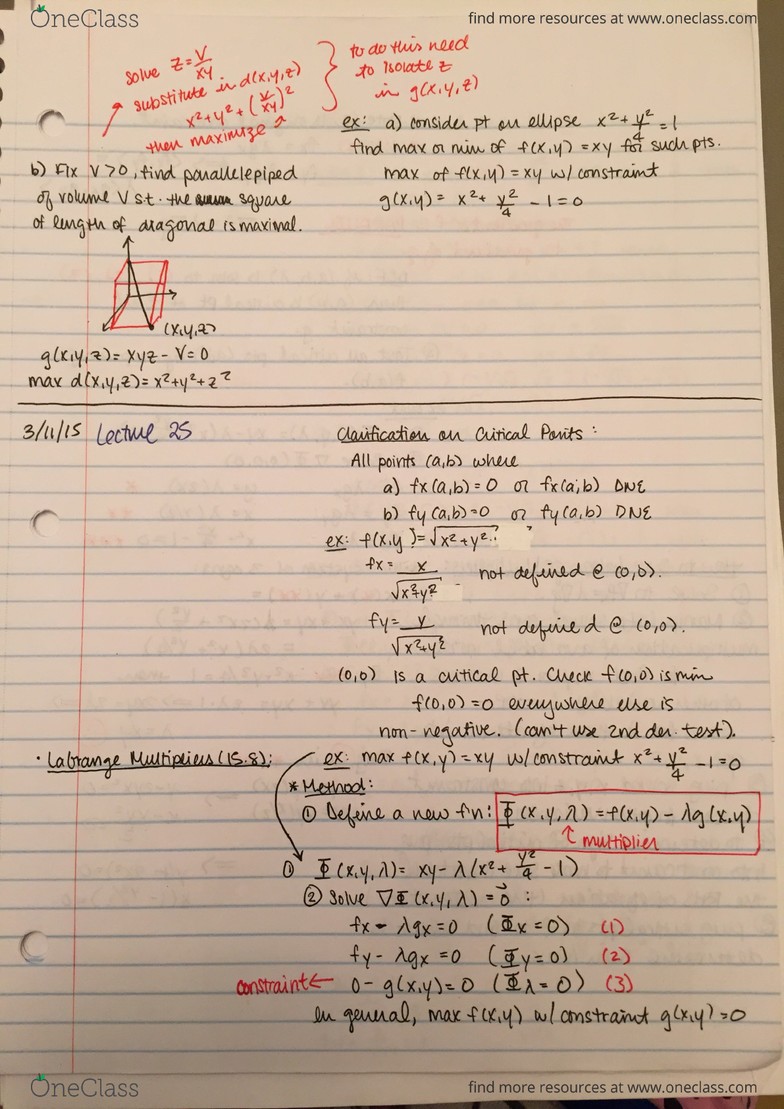 OneClass
find more resources at www.oneclass.com
solve z = V/xy
substitute in d(x,y,z)
x² + y² + (V/xy)²
then maximize
to do this need
to isolate z
in g(x,y,z)
ex: a) consider pt on ellipse x² + y²/4 = 1
find max or min of f(x,y) = xy for such pts.
max of f(x,y) = xy w/ constraint
g(x,y) = x² + y²/4 - 1 = 0
b) Fix V>0, find parallelepiped
of volume V s.t. the square
of length of diagonal is maximal.
(x,y,z)
g(x,y,z) = xyz - V = 0
max d(x,y,z) = x² + y² + z²
3/11/15 Lecture 25
Clarification on Critical Points:
All points (a,b) where
a) fx(a,b) = 0 or fx(a,b) DNE
b) fy(a,b) = 0 or fy(a,b) DNE
ex: f(x,y) = √x² + y²
fx = x/√x²+y² not defined @ (0,0).
fy = y/√x²+y² not defined @ (0,0).
(0,0) is a critical pt. Check f(0,0) is min
f(0,0) = 0 everywhere else is
non-negative. (can't use 2nd der. test).
· Labrange Multipliers (15.8):
ex: max f(x,y) = xy w/ constraint x² + y²/4 - 1 = 0
* Method:
① Define a new fn: Φ(x,y,λ) = f(x,y) - λg(x,y)
↑ multiplier
① Φ(x,y,λ) = xy - λ(x² + y²/4 - 1)
② Solve ∇Φ(x,y,λ) = 0⃗ :
fx - λgx = 0 (Φx = 0) (1)
fy - λgx = 0 (Φy = 0) (2)
constraint ← 0 - g(x,y) = 0 (Φλ = 0) (3)
In general, max f(x,y) w/ constraint g(x,y) = 0
OneClass
find more resources at www.oneclass.com